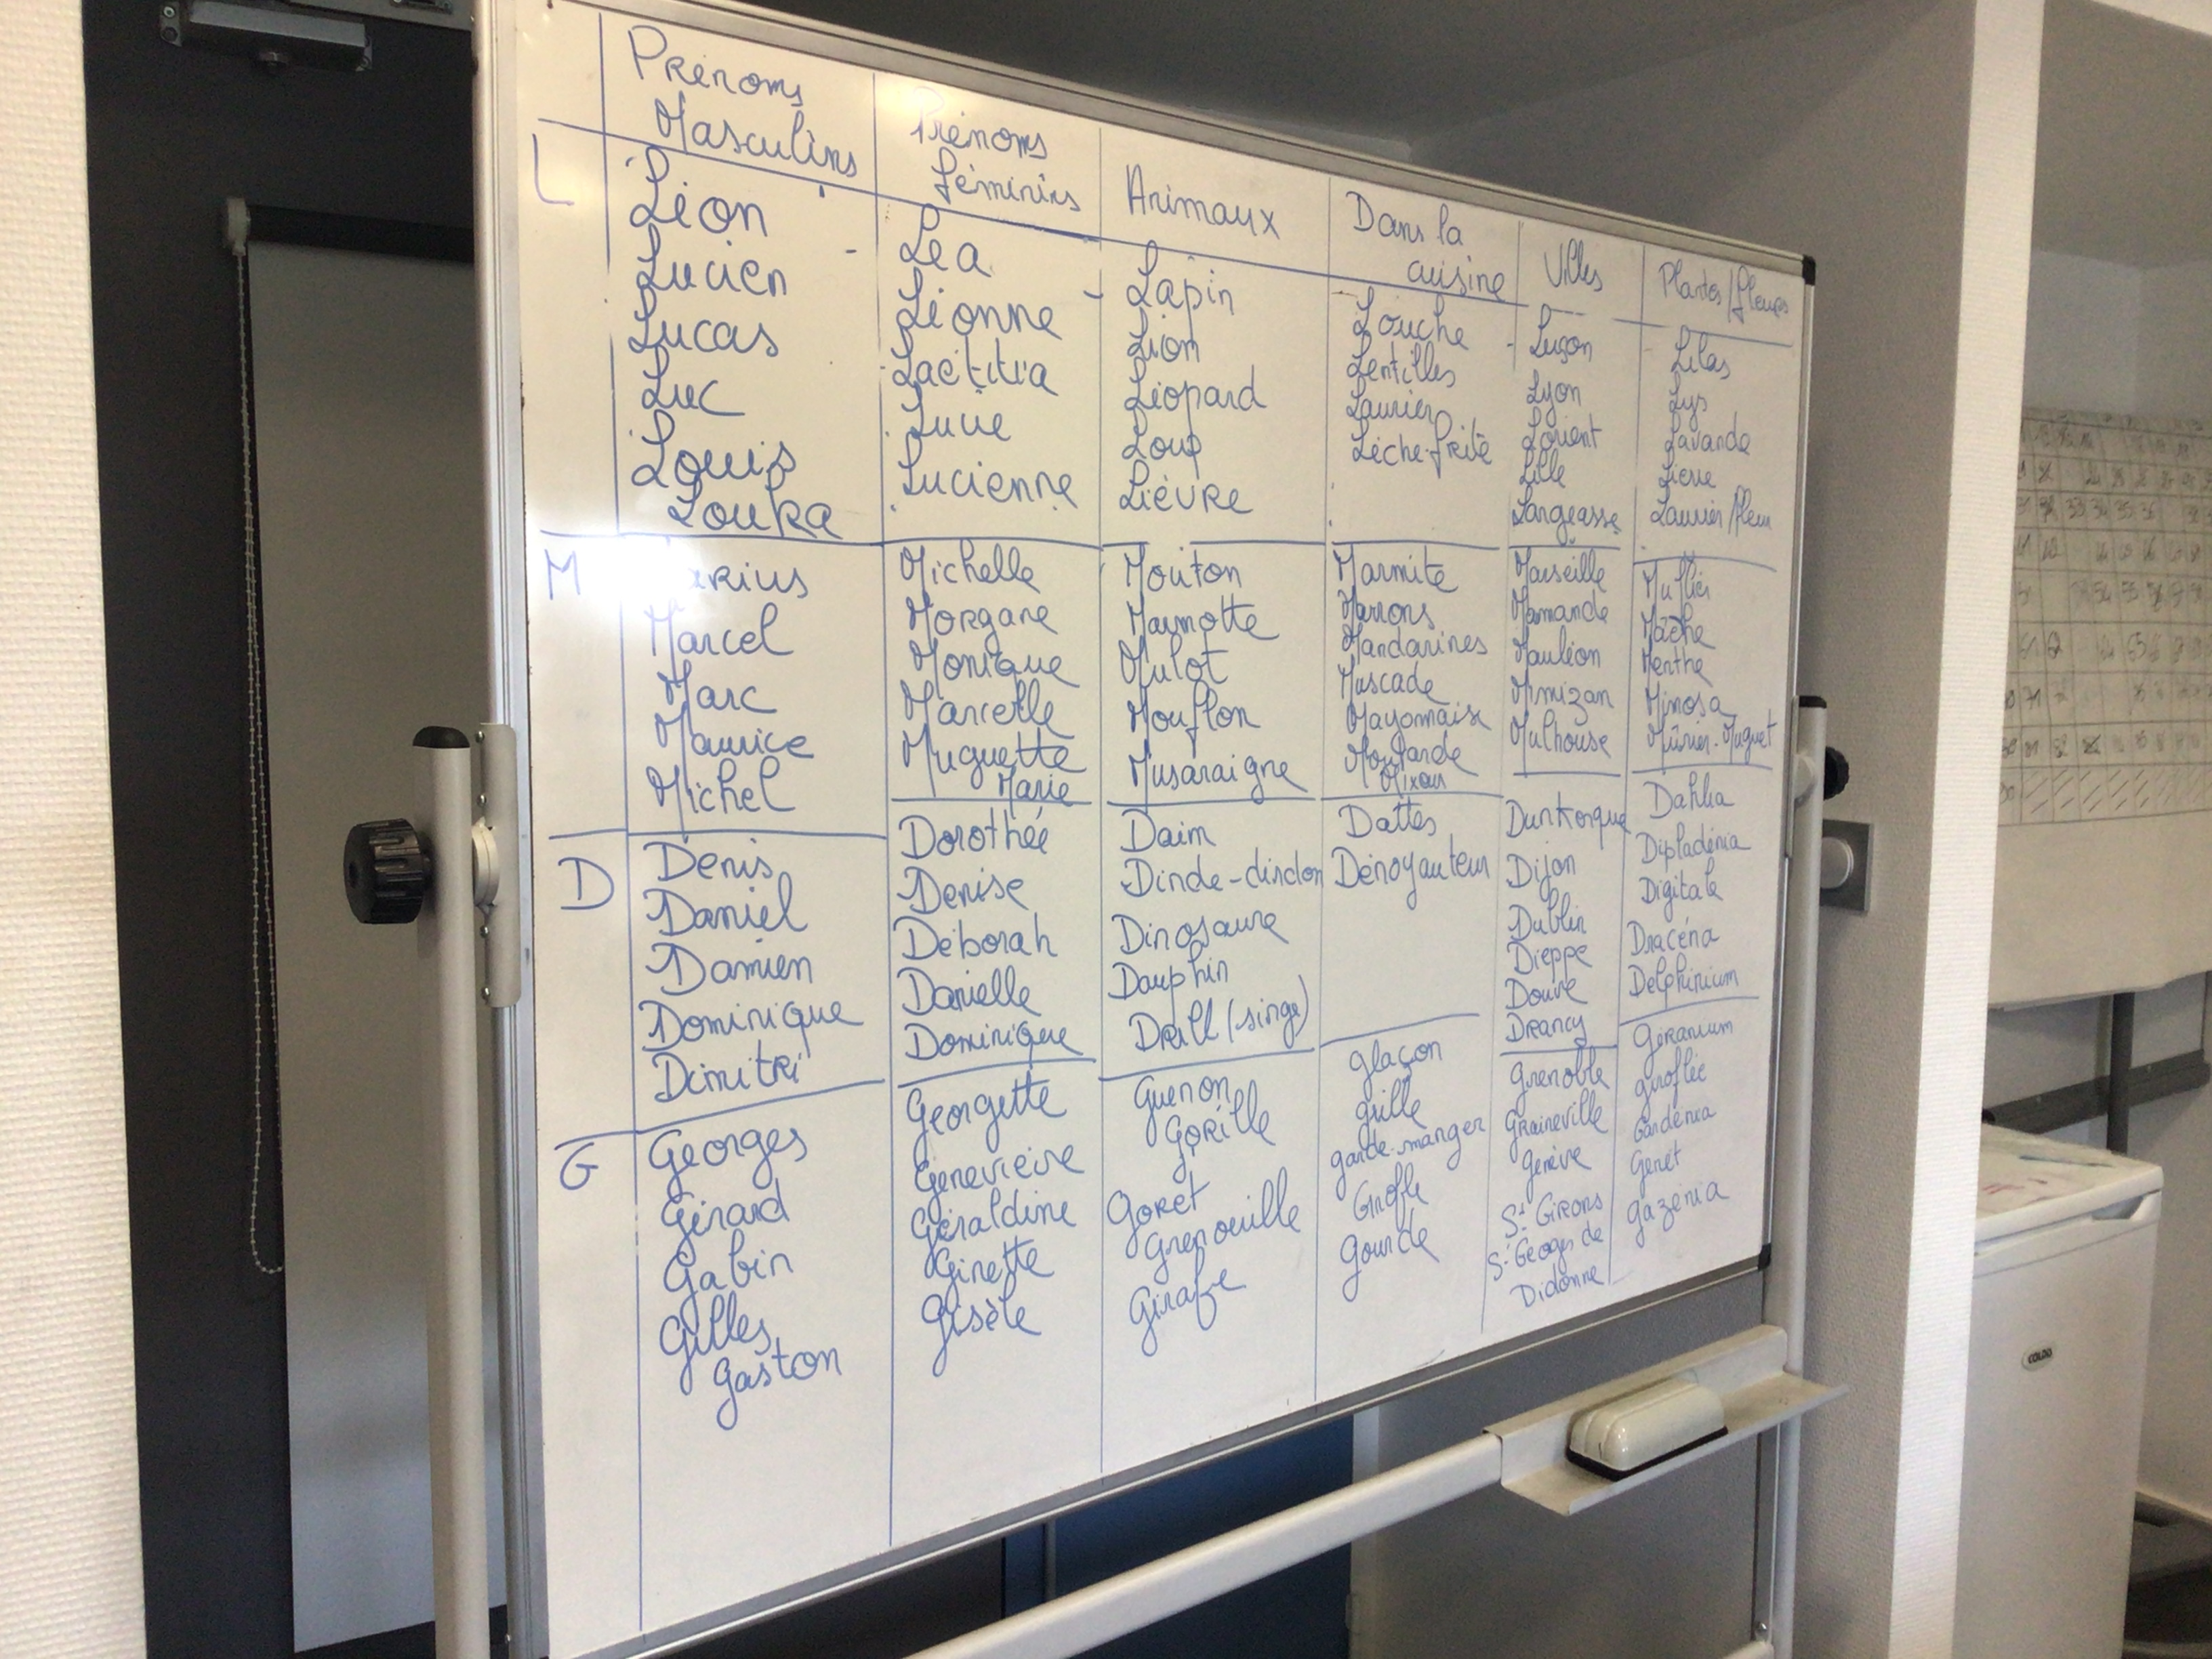 Prénoms
Masculins
Prénoms
féminins
Animaux
Dans la
cuisine
Villes
Plantes/fleurs
L
Léon
Lucien
Lucas
Luc
Louis
Louka
Léa
Léonne
Laetitia
Lucie
Lucienne
Lapin
Lion
Léopard
Loup
Lièvre
Louche
Lentilles
Laurier
Lèche-frite
Luçon
Lyon
Lorient
Lille
Largeasse
Lilas
Lys
Lavande
Lierre
Laurier/fleur
M
Marcel
Marc
Maurice
Michel
Michelle
Morgane
Monique
Marcelle
Muguette
Marie
Mouton
Marmotte
Mulot
Mouflon
Musaraigne
Marmite
Marrons
Mandarines
Muscade
Mayonnaise
Moutarde
Mixeur
Marseille
Marmande
Mauléon
Mimizan
Mulhouse
Muflier
Mâche
Menthe
Mimosa
Mûrier-Muguet
D
Denis
Daniel
Damien
Dominique
Dimitri
Dorothée
Denise
Déborah
Danielle
Dominique
Daim
Dinde-dindon
Dinosaure
Dauphin
Drill (singe)
Dattes
Dénoyauteur
Dunkerque
Dijon
Dublin
Dieppe
Douve
Drancy
Dahlia
Dipladénia
Digitale
Dracéna
Delphinium
G
Georges
Gérard
Gabin
Gilles
Gaston
Georgette
Geneviève
Géraldine
Ginette
Gisèle
Guenon
Gorille
Goret
Grenouille
Girafe
glaçon
grille
garde-manger
Girofle
Gourde
Grenoble
Graineville
Genève
St Girons
St Georges de
Didonne
Géranium
giroflée
Gardénia
Genêt
gazénia